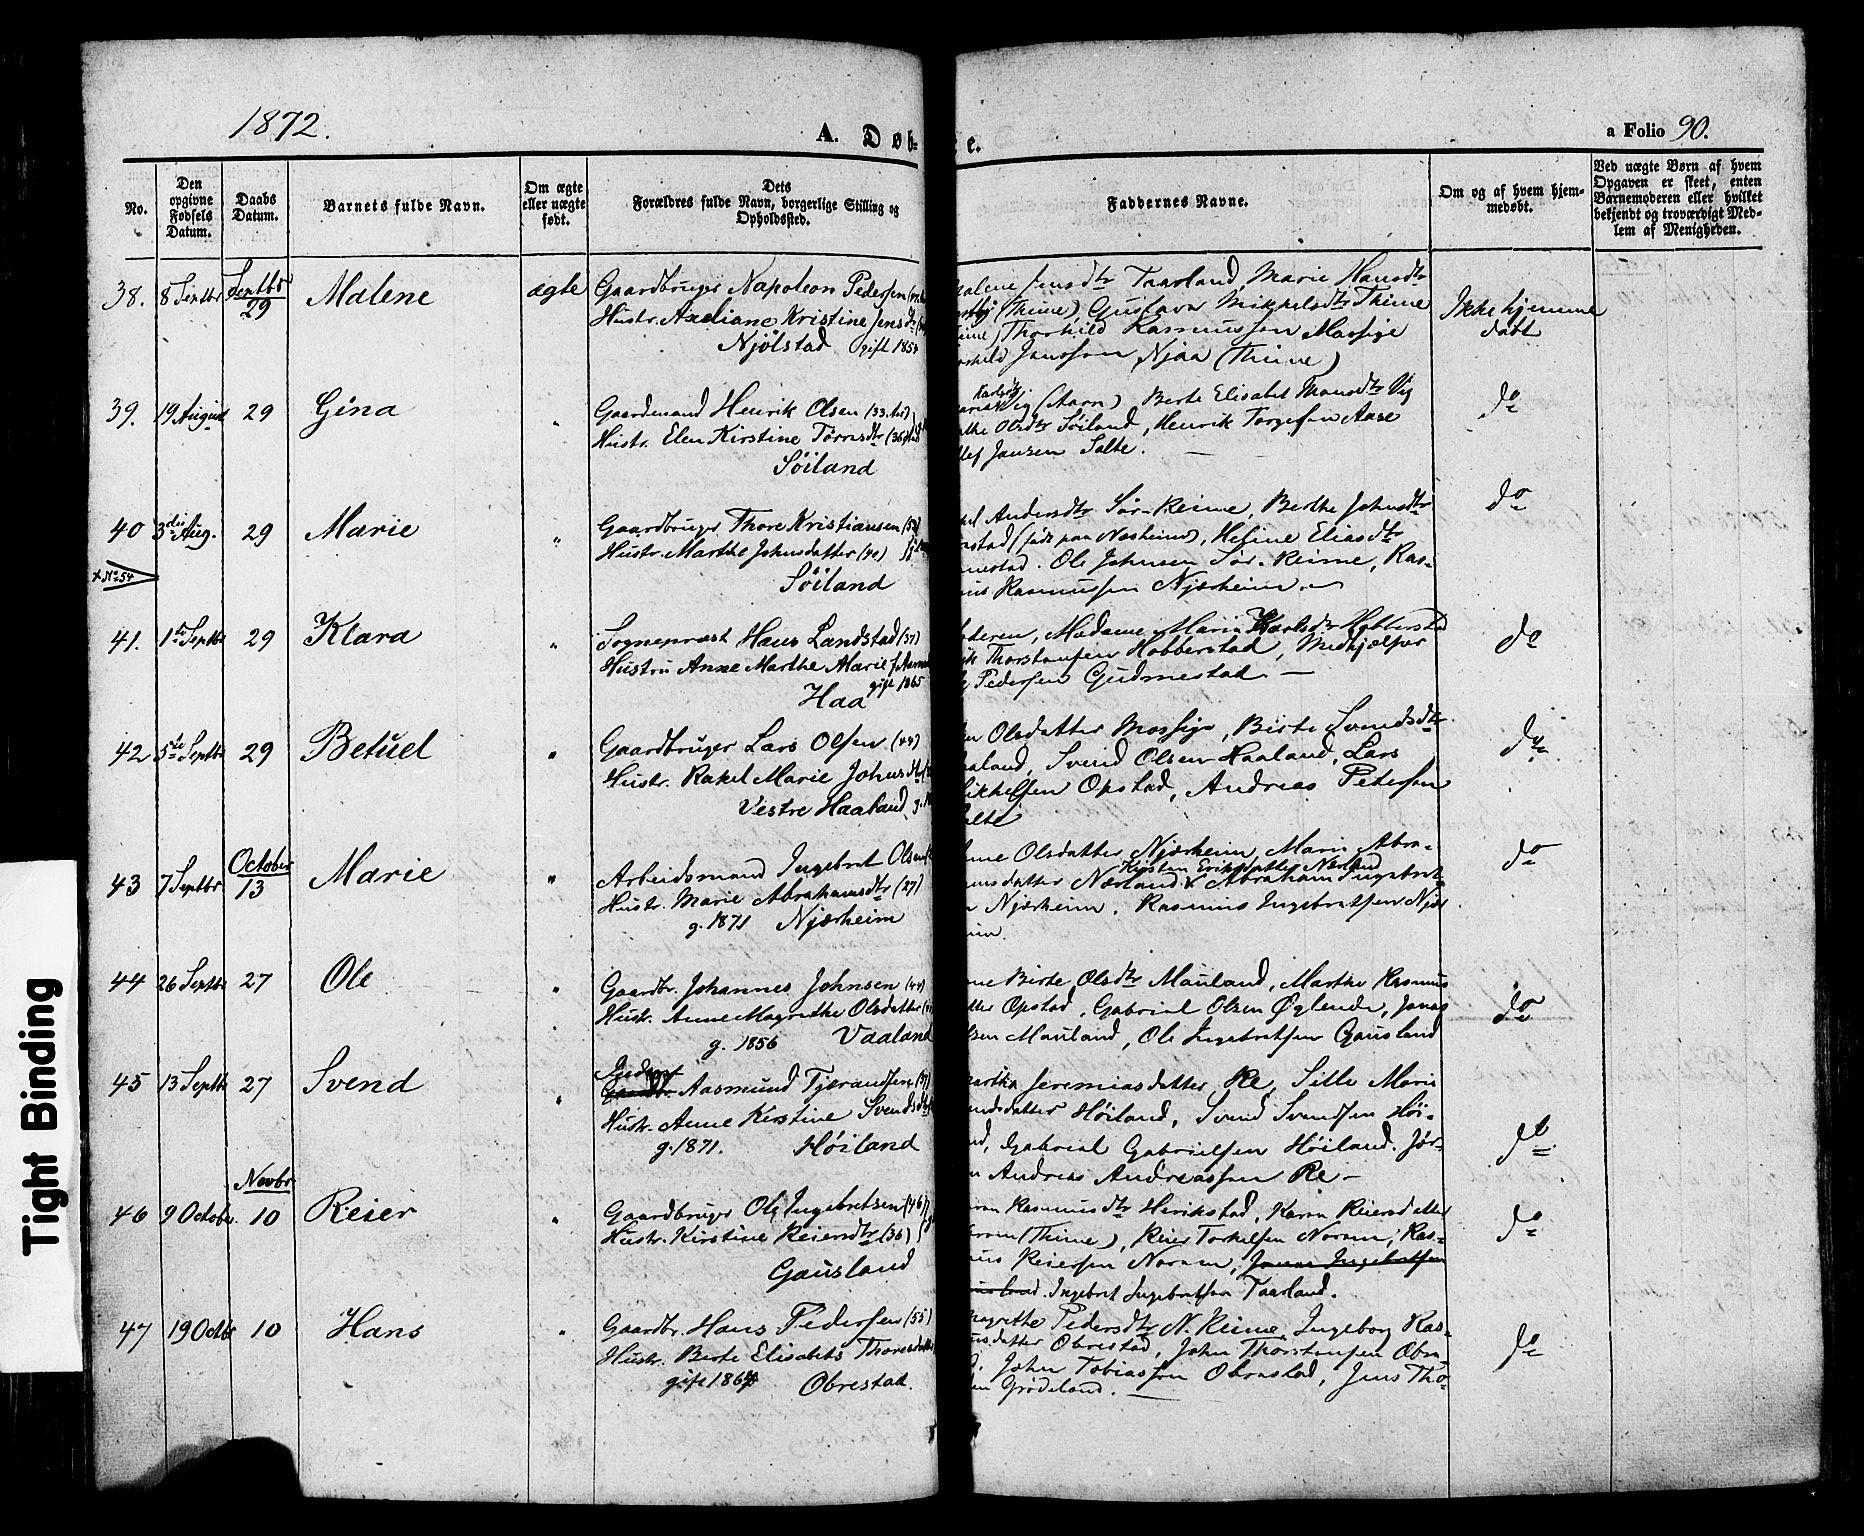 1872.
A. Døb-
e.
a Folio 90.
No.
Den opgivne Fødsels Datum.
Daabs Datum.
Barnets fulde Navn.
Om ægte eller uægte født.
Dets Forældres fulde Navn, borgerlige Stilling og Opholdssted.
Faddernes Navne.
Om og af hvem hjemmedøbt.
Ved uægte Børn af hvem Opgaven er skeet, enten Barnemoderen eller hvilket bekjendt og troværdigt Medlem af Menigheden.
38. 8 Septbr Septbr 29 Malene ægte Gaardbruger Napoleon Pedersen
Hustr. Axeliane Kristine Jensdtr
Njølstad gift 185
Jensdtr Taarland, Marie Hansdtr
(Thime) Gustava Mikkelsdtr Thime
Thorkild Rasmussen Mossige
Janssen Njaa (Thime)
Ikke hjemme
døbt
39. 19 August 29 Gina " Gaardmand Henrik Olsen (33 Aar)
Hustr. Elen Kirstine Tørresdtr (36)
Søiland
Vig (Aarn) Berte Elisabet Monsdtr Vig
Olsdtr Søiland, Henrik Torgersen Aase
Jansen Salte.
do
40 3die Aug. 29 Marie " Gaardbruger Thore Kristiansen (52)
Hustr. Marthe Johnsdatter (40)
Søiland
Andersdtr Sør-Reime, Berthe Johnsdtr
(født paa Næsheim), Heline Eliasdtr
Ole Johnsen Sør-Reime, Ras-
Rasmussen Njærheim.
do
x No 54
41. 1ste Septbr 29 Klara " Sognepræst Hans Landstad (37)
Hustru Anne Marthe Marie f.
gift 1865
Haa
Madame Maria Karlsdtr Hobberstad
Thorstensen Hobberstad, Medhjælper
Pedersen Gudmestad
do
42 5te Septbr 29 Betuel " Gaardbruger Lars Olsen (44)
Hustr. Rakel Marie Johnsdtr
Vestre Haaland g.
Olsdatter Mossige, Birte Svendsdtr
Svend Olsen Haaland, Lars
Opstad, Andreas Pedersen
do
43 7 Septbr October 13 Marie " Arbeidsmand Ingebret Olsen
Hustr. Marie Abrahamsdtr (27)
g. 1871 Njærheim
Olsdatter Njærheim, Marie Abra-
Kirsten Eriksdatter Nærland
Nærland, Abraham Ingebret-
Njærheim. Rasmus Ingebretsen Njær
do
44 26 Septbr 27 Ole " Gaardbr. Johannes Johnsen (44)
Hustr. Anne Magrethe Olsdatter
g. 1856 Vaaland
Birte Olsdtr Mauland, Marthe Rasmus
Opstad, Gabriel Olsen Øglende, Jonas
Mauland, Ole Ingebretsen Gausland
do
45 13 Septbr 27 Svend " Inderst
Gaardbr. Aasmund Tjærandsen (37)
Hustr. Anne Kirstine Svendsdtr
g. 1871. Høiland
Jeremiasdatter Re, Sille Marie
Høiland, Svend Svendsen Høi-
Gabriel Gabrielsen Høiland. Jør-
Andreas Andreassen Re
do
46 9 Octobr. Novbr 10 Reier " Gaardbruger Ole Ingebretsen (46)
Hustr. Kirstine Reiersdtr (36)
Gausland
Rasmusdtr Herikstad, Karen Reiersdatter
(Thime), Reier Torkelsen Norem, Ras-
Reiersen Norem, Jonas Ingebretsen
Ingebret Ingebretsen Taarland.
do
47 19 Octbr 10 Hans " Gaardbr. Hans Pedersen (55)
Hustr. Berte Elisabets Thoresdatter
gift 1864 Obrestad.
Pedersdtr N. Reime, Ingeborg Ras-
Obrestad, John Thorstensen Obre-
John Tobiassen Obrestad, Jens Tho-
Grødeland.
do
Tight Binding